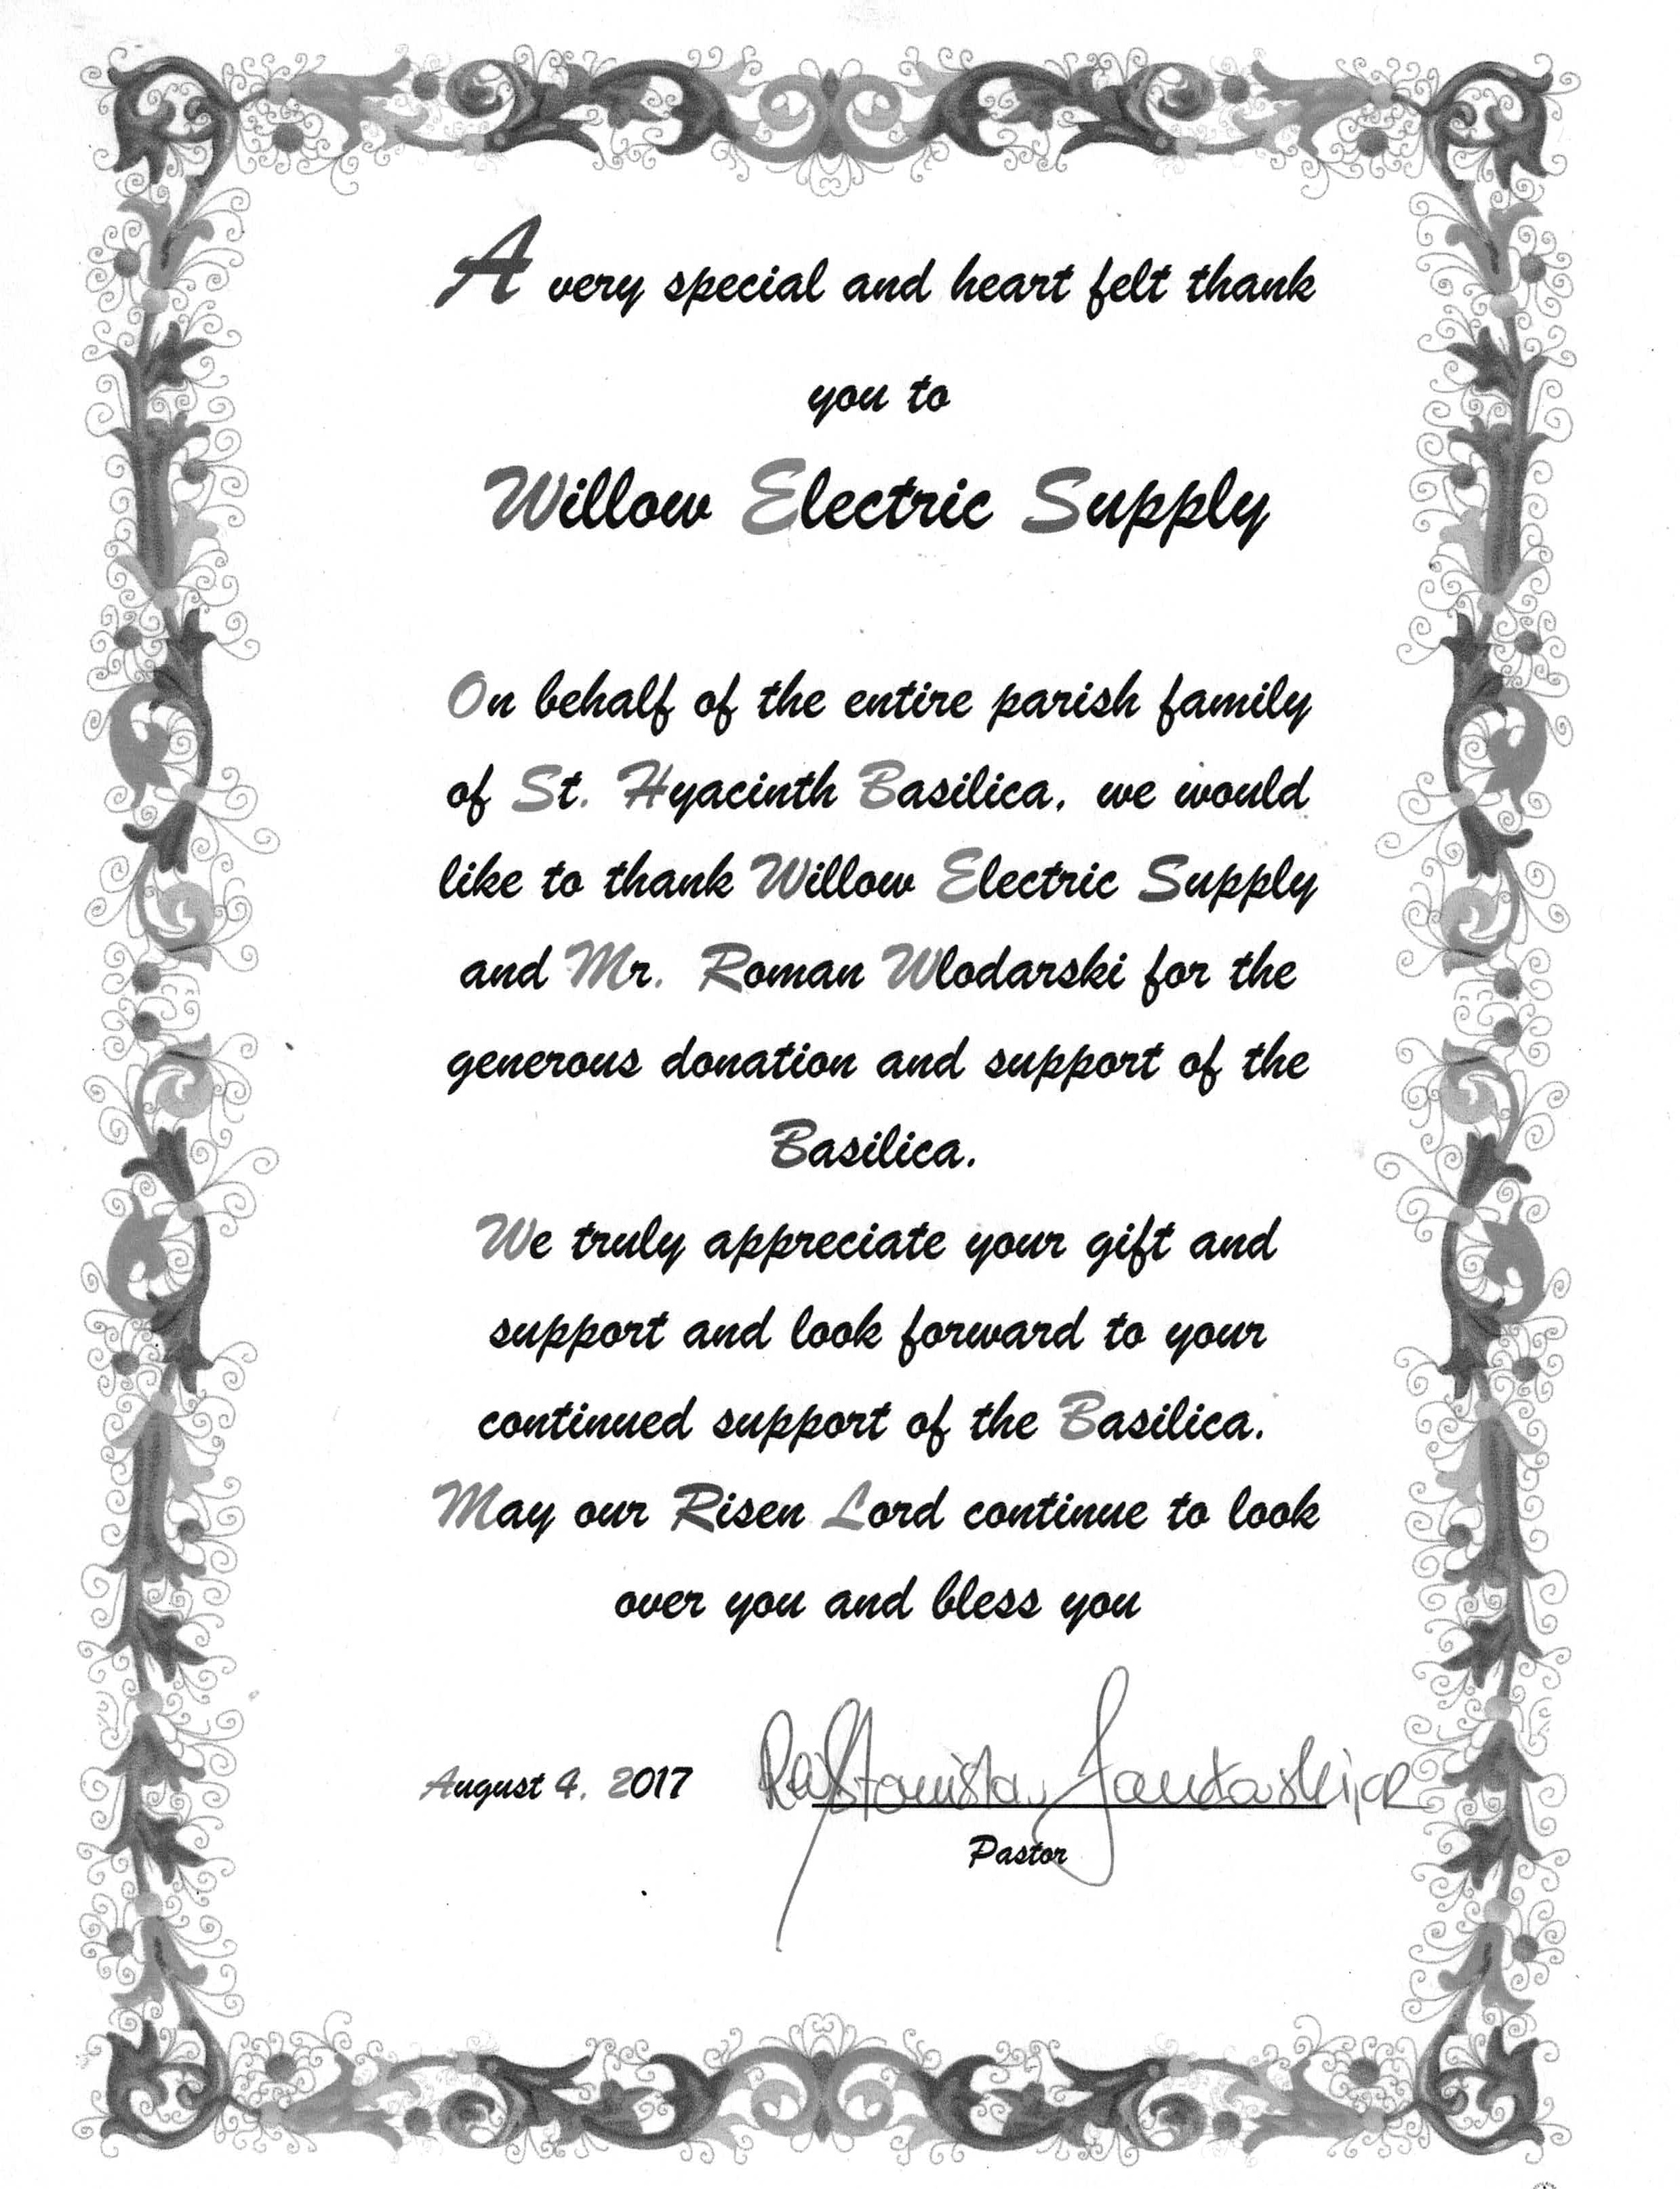 A very special and heart felt thank
you to
Willow Electric Supply
On behalf of the entire parish family
of St. Hyacinth Basilica, we would
like to thank Willow Electric Supply
and Mr. Roman Wlodarski for the
generous donation and support of the
Basilica.
We truly appreciate your gift and
support and look forward to your
continued support of the Basilica.
May our Risen Lord continue to look
over you and bless you
August 4, 2017
Pastor